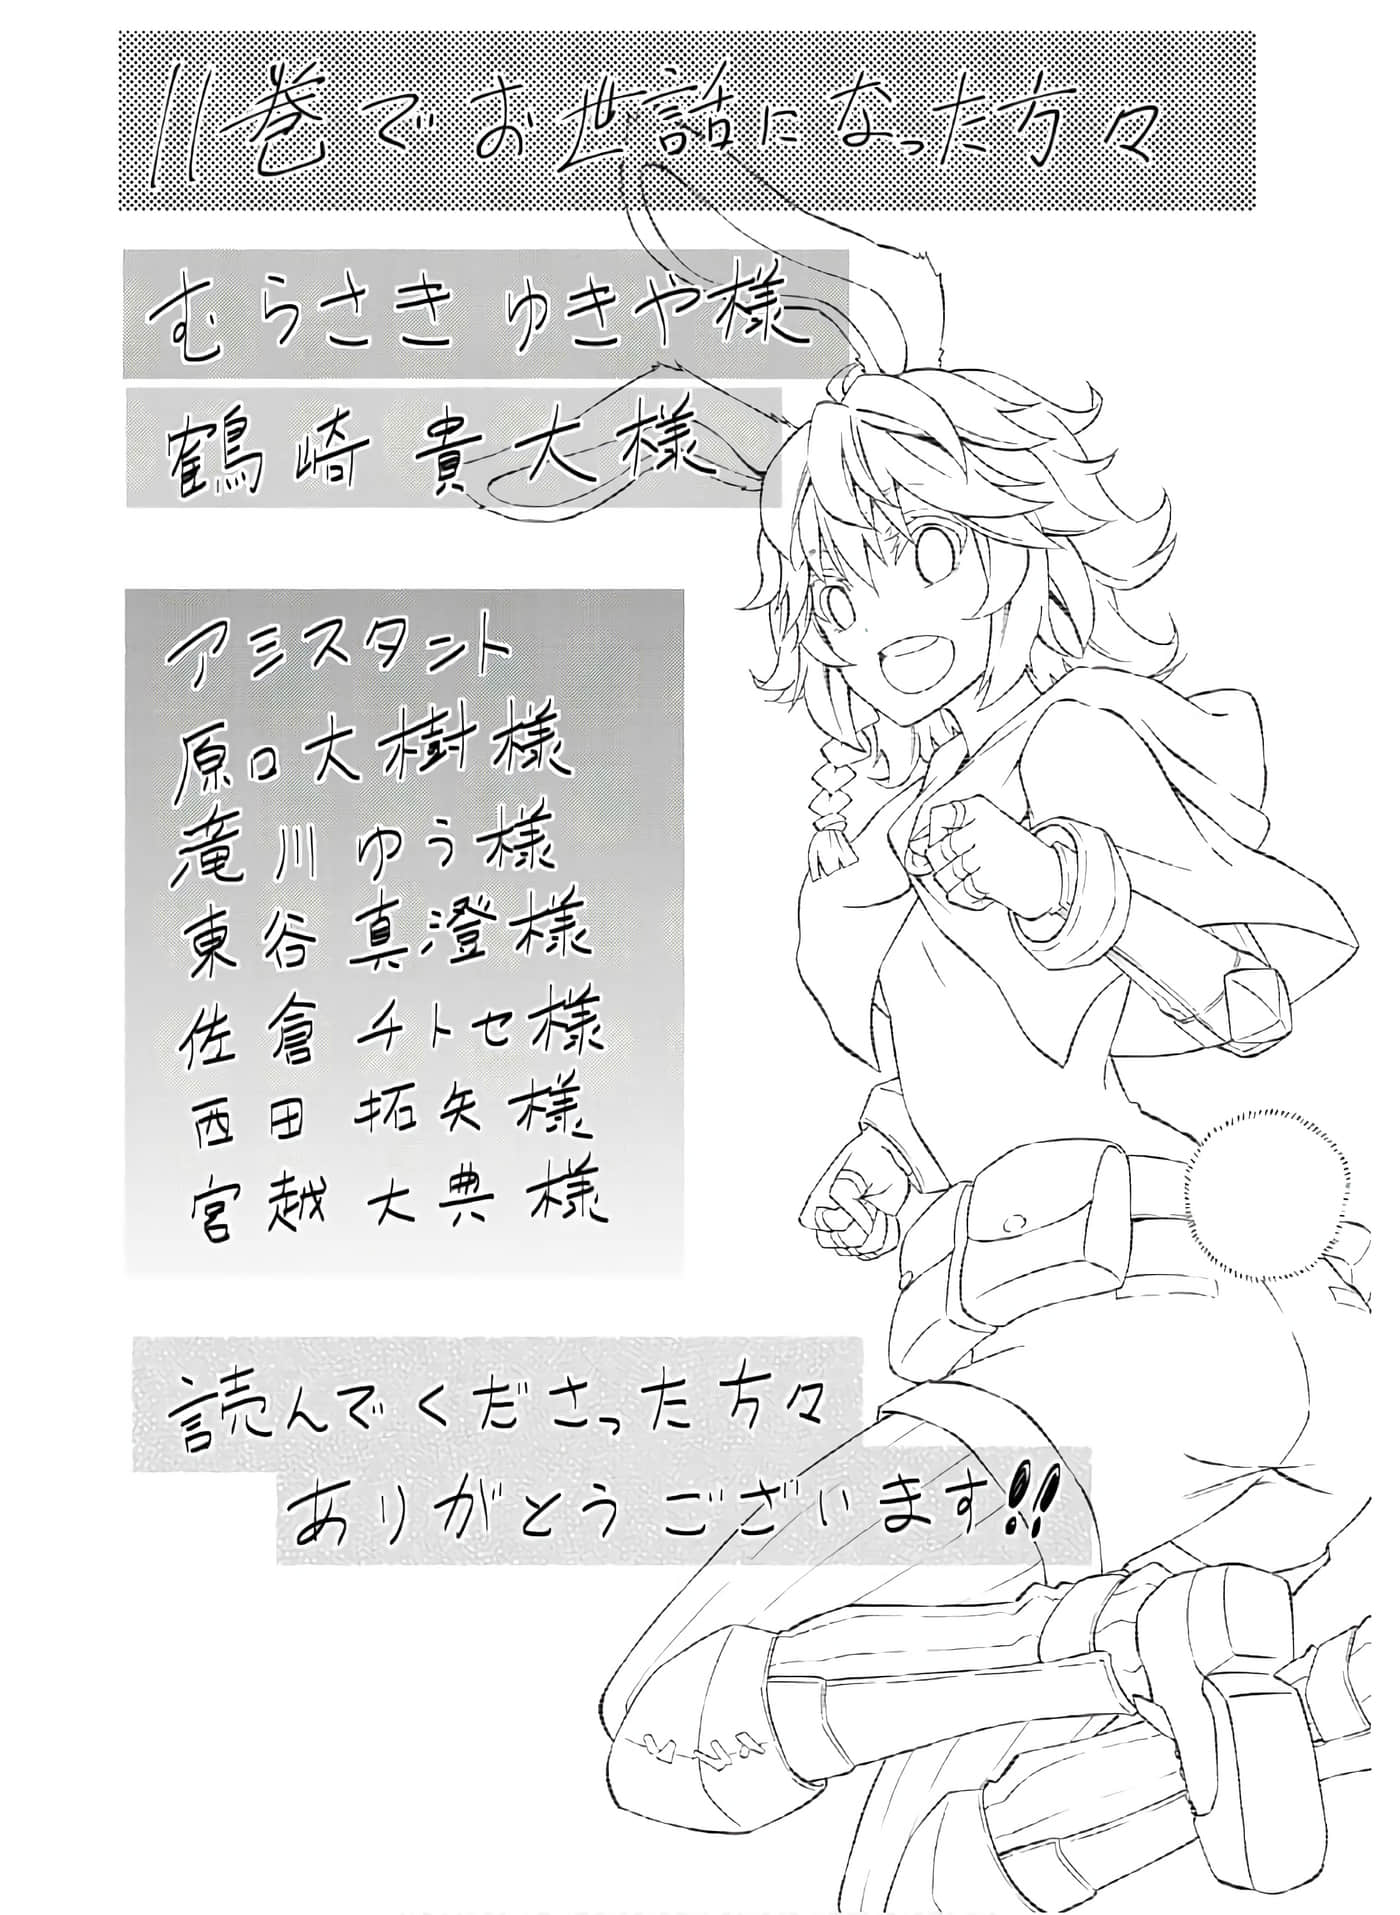 11巻でお世話になった方々
むらさきゆきや様
鶴崎貴大様
アシスタント
原口大樹様
滝川ゆう様
東谷真澄様
佐倉チトセ様
西田拓矢様
宮越大典様
読んでくださった方々
ありがとうございます!!